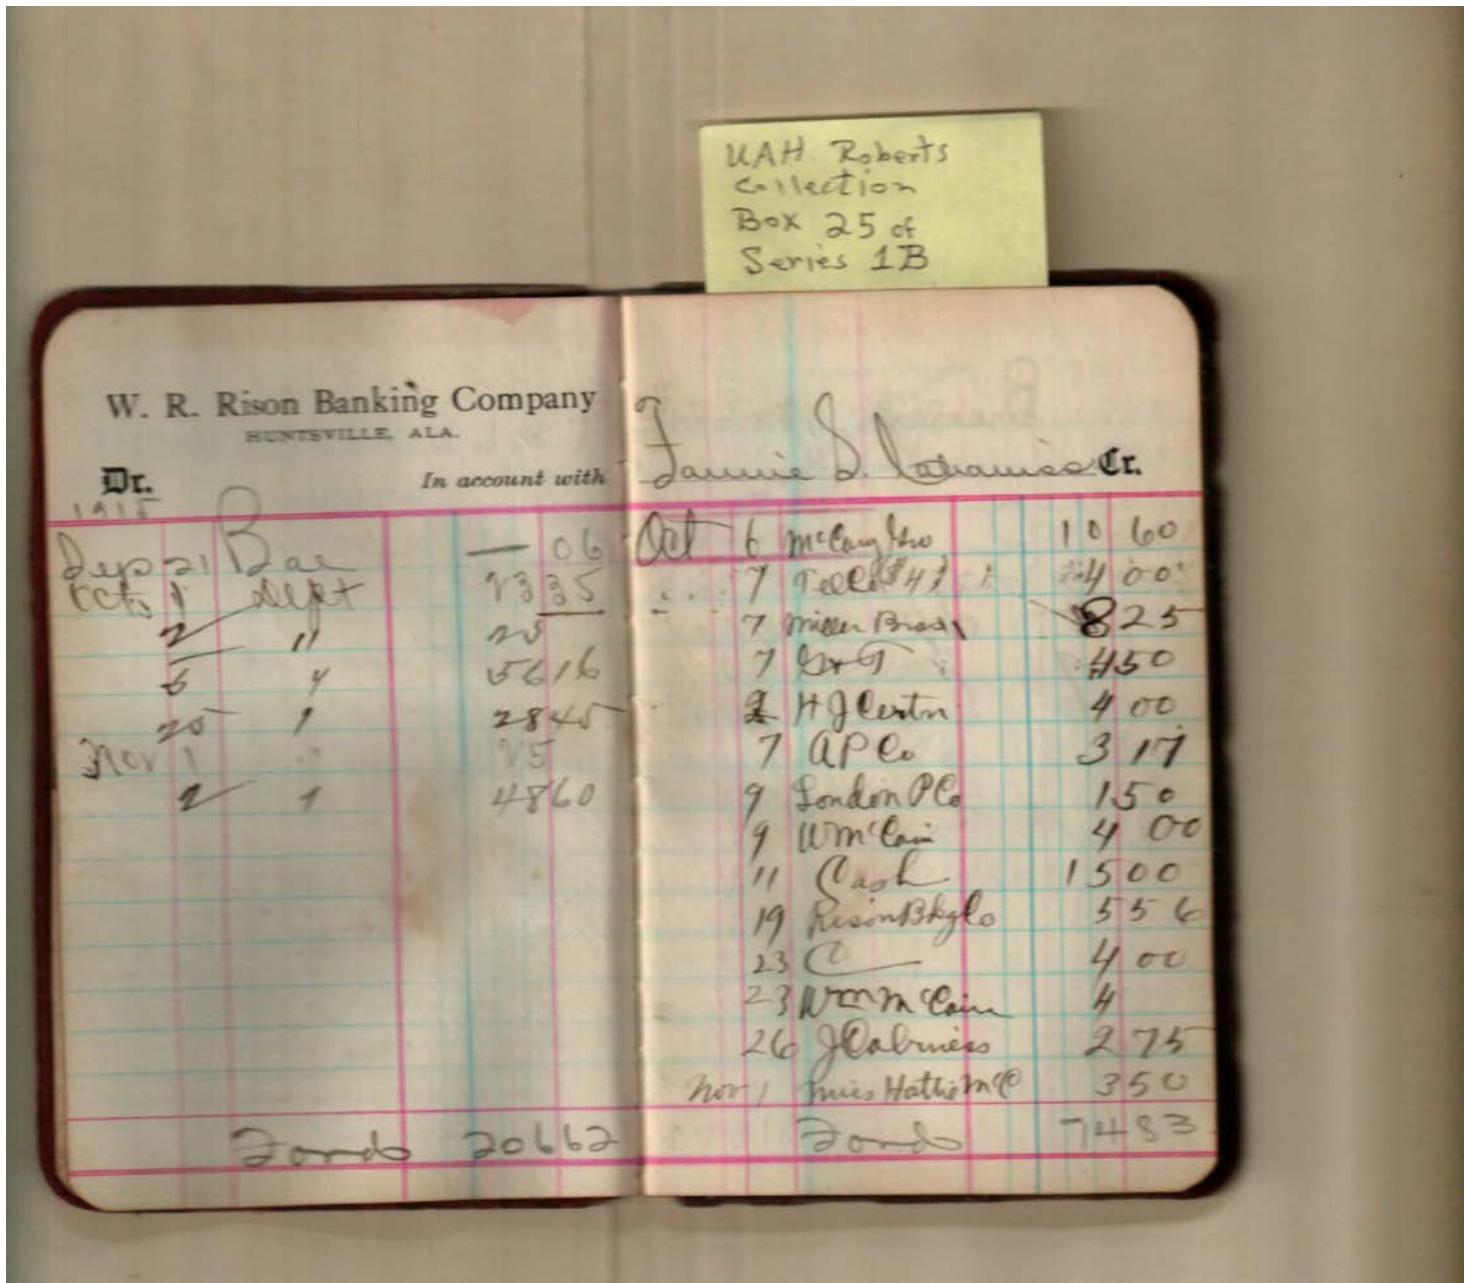 UAH Roberts
Collection
Box 25 of
Series 1B
W. R. Rison Banking Company
HUNTSVILLE, ALA.
Dr.
In account with
1915
Sep 21 Bal — 06
Oct 1 Dept 23 35
2 " 25
5 " 56 16
25 " 28 45
Nov 1 " 25
2 " 48 60
Forwd 206 62
Fannie S. Cabaniss Cr.
Oct 6 McCary Gro 10 60
7 4 00
7 Miller Bros 8 25
7 G & T 4 50
H J Certn 4 00
7 A P Co 3 17
9 London P Co 1 50
9 W McCain 4 00
11 Cash 15 00
19 Rison Bkg Co 5 56
23 C 4 00
23 Wm McCain 4
26 J Cabaniss 2 75
Nov 1 Miss Hattie McC 3 50
Forwd 74 83